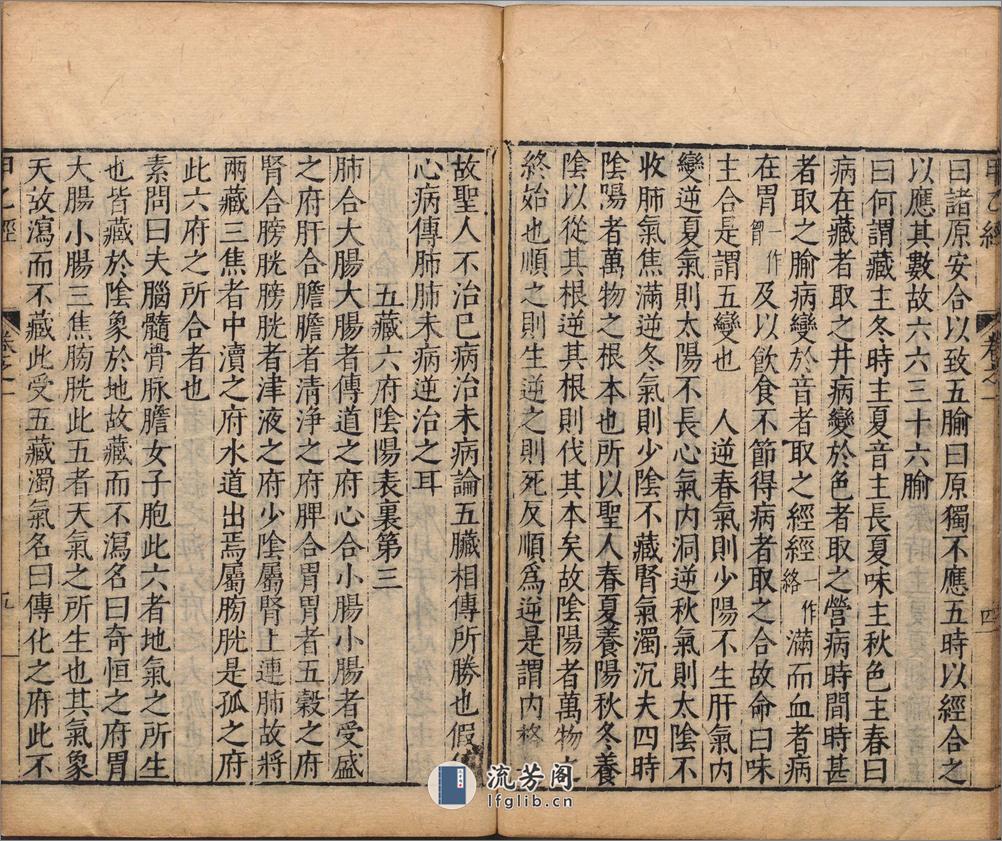 甲乙經 卷之一 四
曰諸原安合以致五腧曰原獨不應五時以經合之
以應其數故六六三十六腧
曰何謂藏主冬時主夏音主長夏味主秋色主春曰
病在藏者取之井病變於色者取之滎病時間時甚
者取之腧病變於音者取之經經一作絡滿而血者病
在胃一作胷及以飲食不節得病者取之合故命曰味
主合是謂五變也 人逆春氣則少陽不生肝氣內
變逆夏氣則太陽不長心氣內洞逆秋氣則太陰不
收肺氣焦滿逆冬氣則少陰不藏腎氣濁沉夫四時
陰陽者萬物之根本也所以聖人春夏養陽秋冬養
陰以從其根逆其根則伐其本矣故陰陽者萬物之
終始也順之則生逆之則死反順爲逆是謂內格
故聖人不治已病治未病論五臟相傳所勝也假
心病傳肺肺未病逆治之耳
五藏六府陰陽表裏第三
肺合大腸大腸者傳道之府心合小腸小腸者受盛
之府肝合膽膽者清淨之府脾合胃胃者五穀之府
腎合膀胱膀胱者津液之府少陰屬腎上連肺故將
兩藏三焦者中瀆之府水道出焉屬膀胱是孤之府
此六府之所合者也
素問曰夫腦髓骨脉膽女子胞此六者地氣之所生
也皆藏於陰象於地故藏而不瀉名曰奇恒之府胃
大腸小腸三焦膀胱此五者天氣之所生也其氣象
天故瀉而不藏此受五藏濁氣名曰傳化之府此不
甲乙經 卷之一 九
流芳阁
lfglib.cn